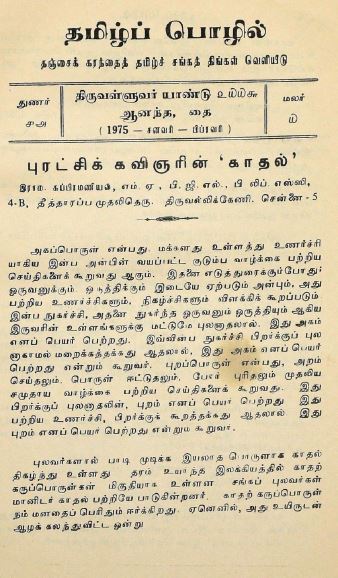 தமிழ்ப் பொழில்
தஞ்சைக் கரந்தைத் தமிழ்ச் சங்கத் திங்கள் வெளியீடு
துணர்
திருவள்ளுவர் யாண்டு
மலர்
ஆனந்த, தை
( 1975 — சனவரி — பிப்ரவரி )
புரட்சிக் கவிஞரின் ‘காதல்’
இராம. சுப்பிரமணியன், எம். ஏ , பி. ஜி. எல்., பி லிப். எஸ்ஸி,
4-B, தீத்தாரப்ப முதலிதெரு. திருவல்லிக்கேணி. சென்னை - 5
அகப்பொருள் என்பது. மக்களது உள்ளத்து உணர்ச்சி
யாகிய இன்ப அன்பின் வயப்பட்ட குடும்ப வாழ்க்கை பற்றிய
செய்திகளைக் கூறுவது ஆகும். இதனை எடுத்துரைக்கும்போது
ஒருவனுக்கும். ஒருத்திக்கும் இடையே ஏற்படும் அன்பும், அது
பற்றிய உணர்ச்சிகளும், நிகழ்ச்சிகளும் விளக்கிக் கூறப்படும்
இன்ப நுகர்ச்சி, அதனை நுகர்ந்த ஒருவனும் ஒருத்தியும் ஆகிய
இருவரின் உள்ளங்களுக்கு மட்டுமே புலனாதலால். இது அகம்
எனப் பெயர் பெற்றது. இவ்வின்ப நுகர்ச்சி பிறர்க்குப் புல
னாகாமல் மறைக்கத்தக்கது ஆதலால், இது அகம் எனப் பெயர்
பெற்றது என்றும் கூறுவர். புறப்பொருள் என்பது, அறம்
செய்தலும். பொருள் ஈட்டுதலும். போர் புரிதலும் முதலிய
சமுதாய வாழ்க்கை பற்றிய செய்திகளைக் கூறுவது. இது
பிறர்க்குப் புலனாகலின், புறம் எனப் பெயர் பெற்றது இது
பற்றிய உணர்ச்சி, பிறர்க்குக் கூறத்தக்கது ஆதலால் இது
புறம் எனப் பெயர் பெற்றது என்றும் கூறுவர்.
புலவர்களால் பாடி முடிக்க இயலாத பொருளாக காதல்
திகழ்ந்து உள்ளது தரம் உயர்ந்த இலக்கியத்தில் காதற்
கருப்பொருள்கள் மிகுதியாக உள்ளன சங்கப் புலவர்கள்
மானிடர் காதல் பற்றியே பாடுகின்றனர். காதற் கருப்பொருள்
நம் மனதைப் பெரிதும் ஈர்க்கிறது. ஏனெனில், அது உயிருடன்
ஆழக் கலந்துவிட்ட ஒன்று